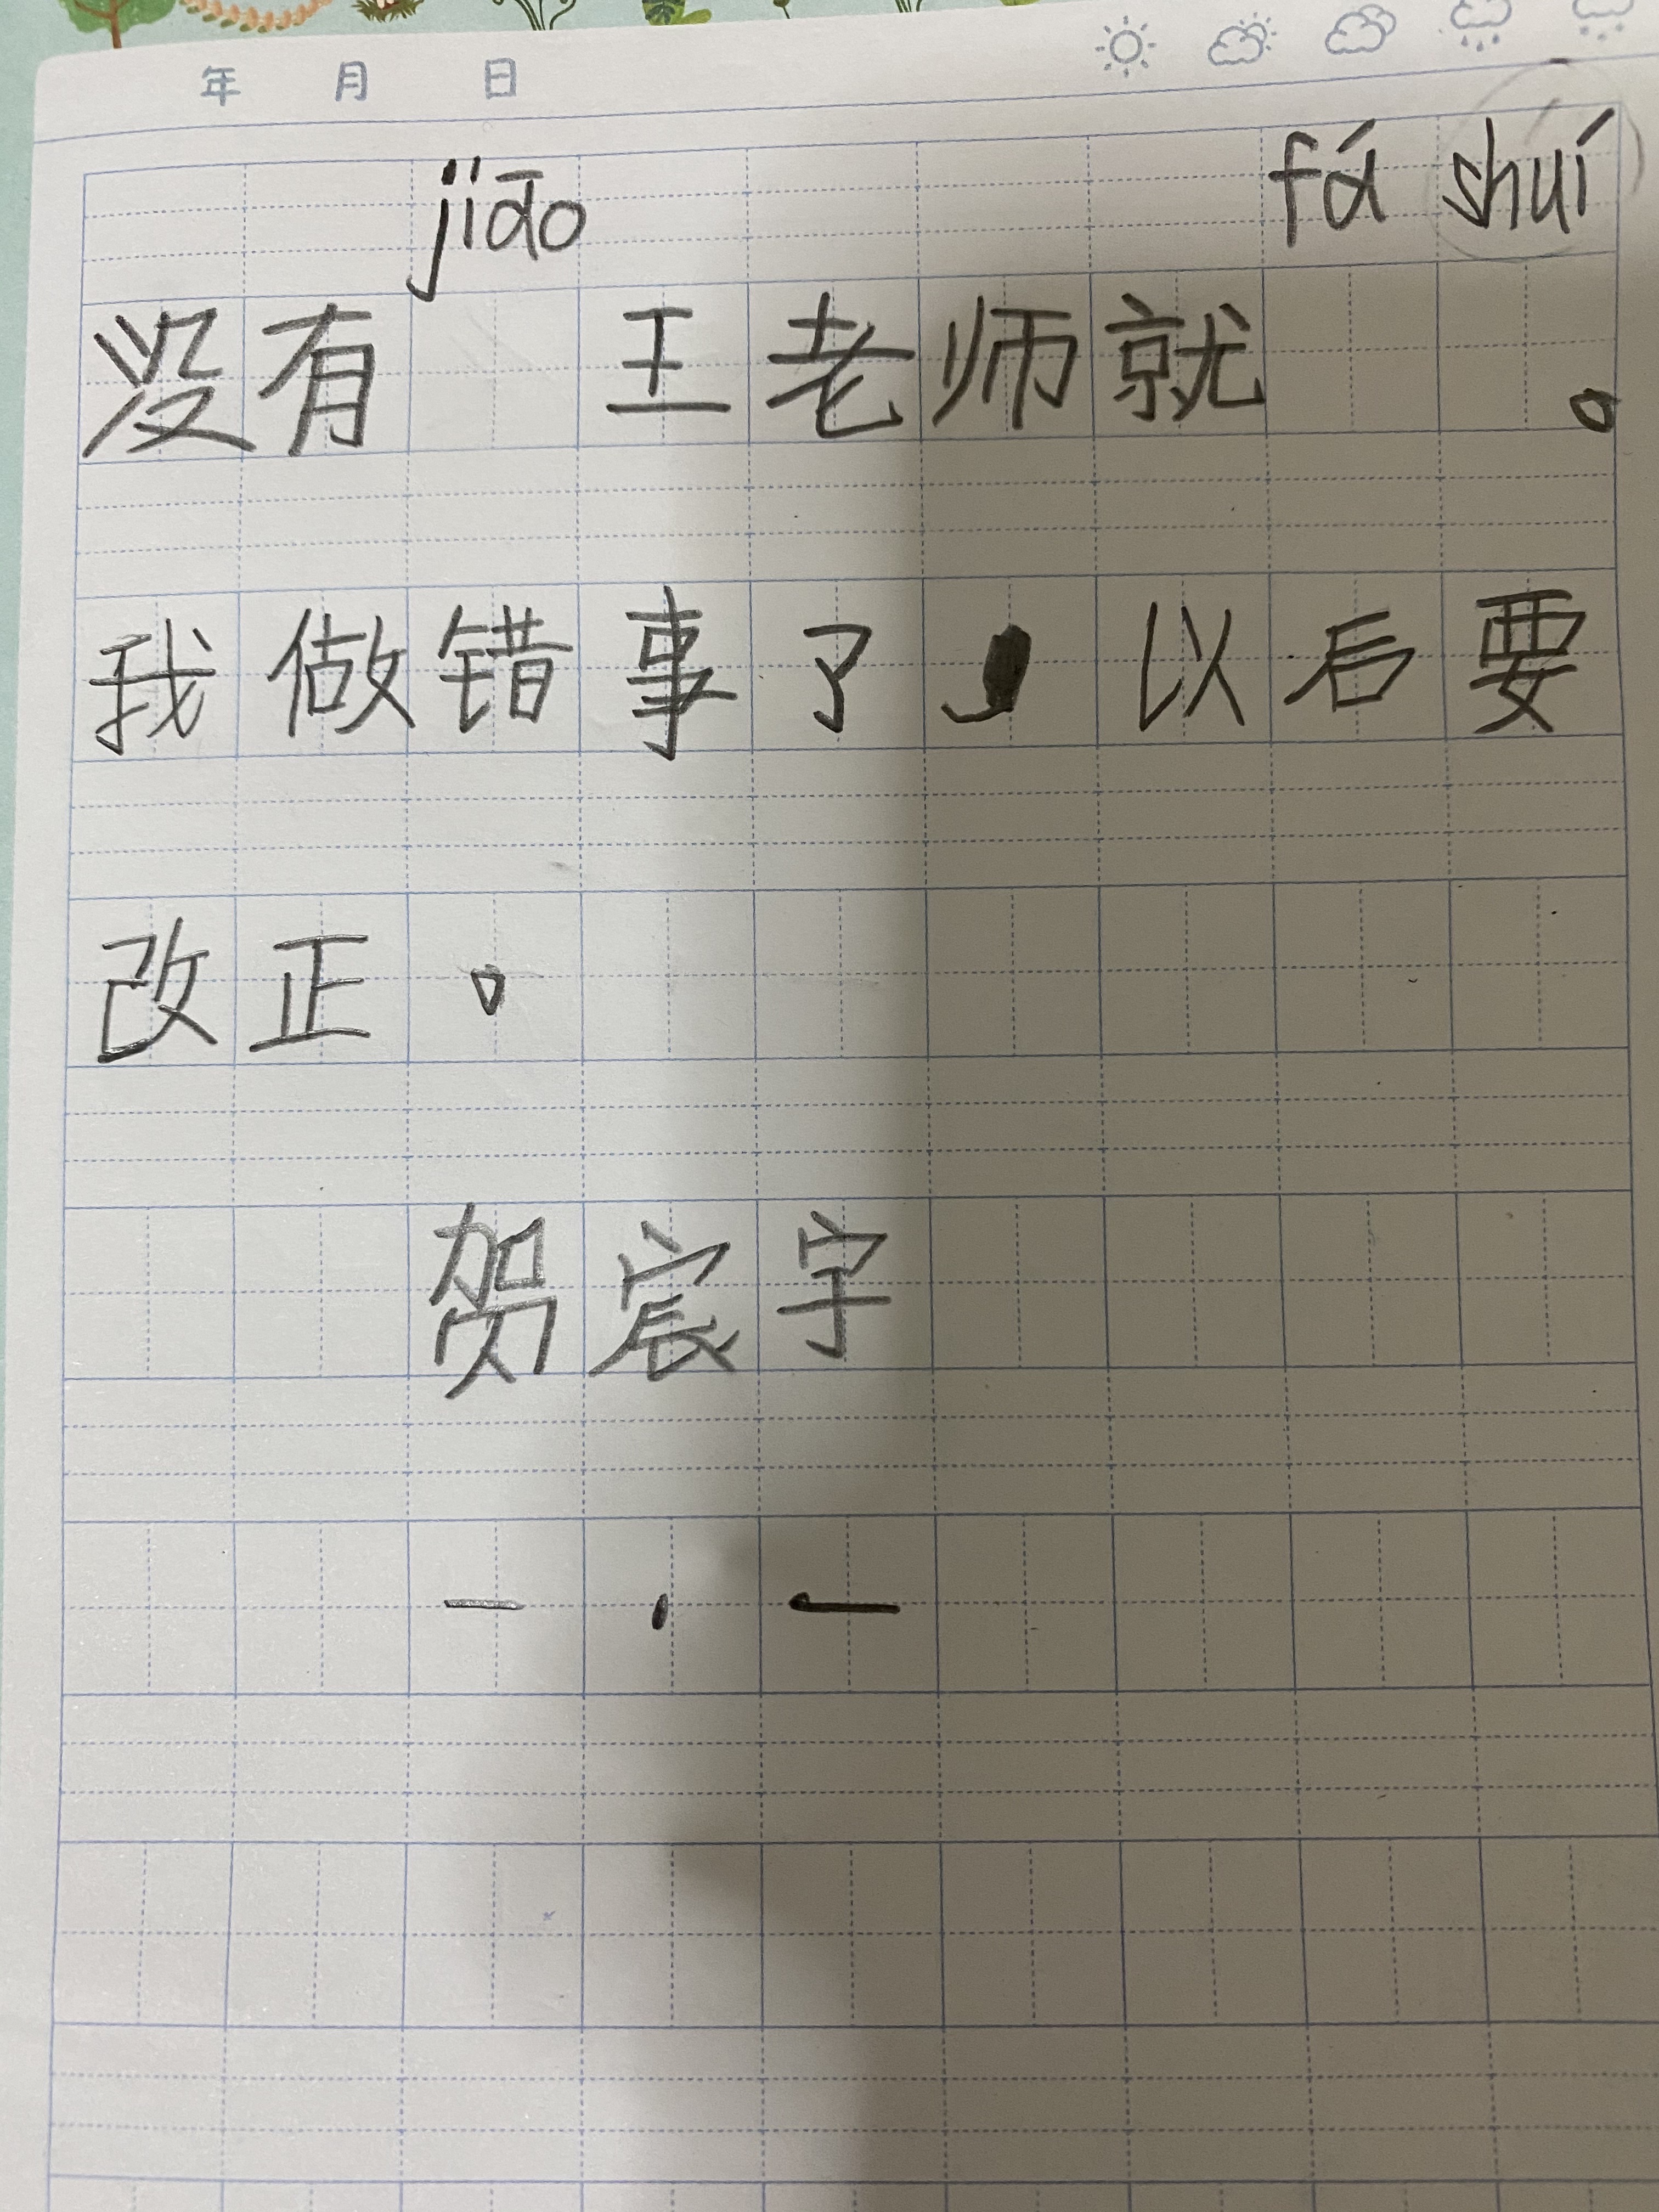 年 月 日
jiāo fá shuí
没有 王老师就 。
我做错事了，以后要
改正。
贺宸宇
一.一